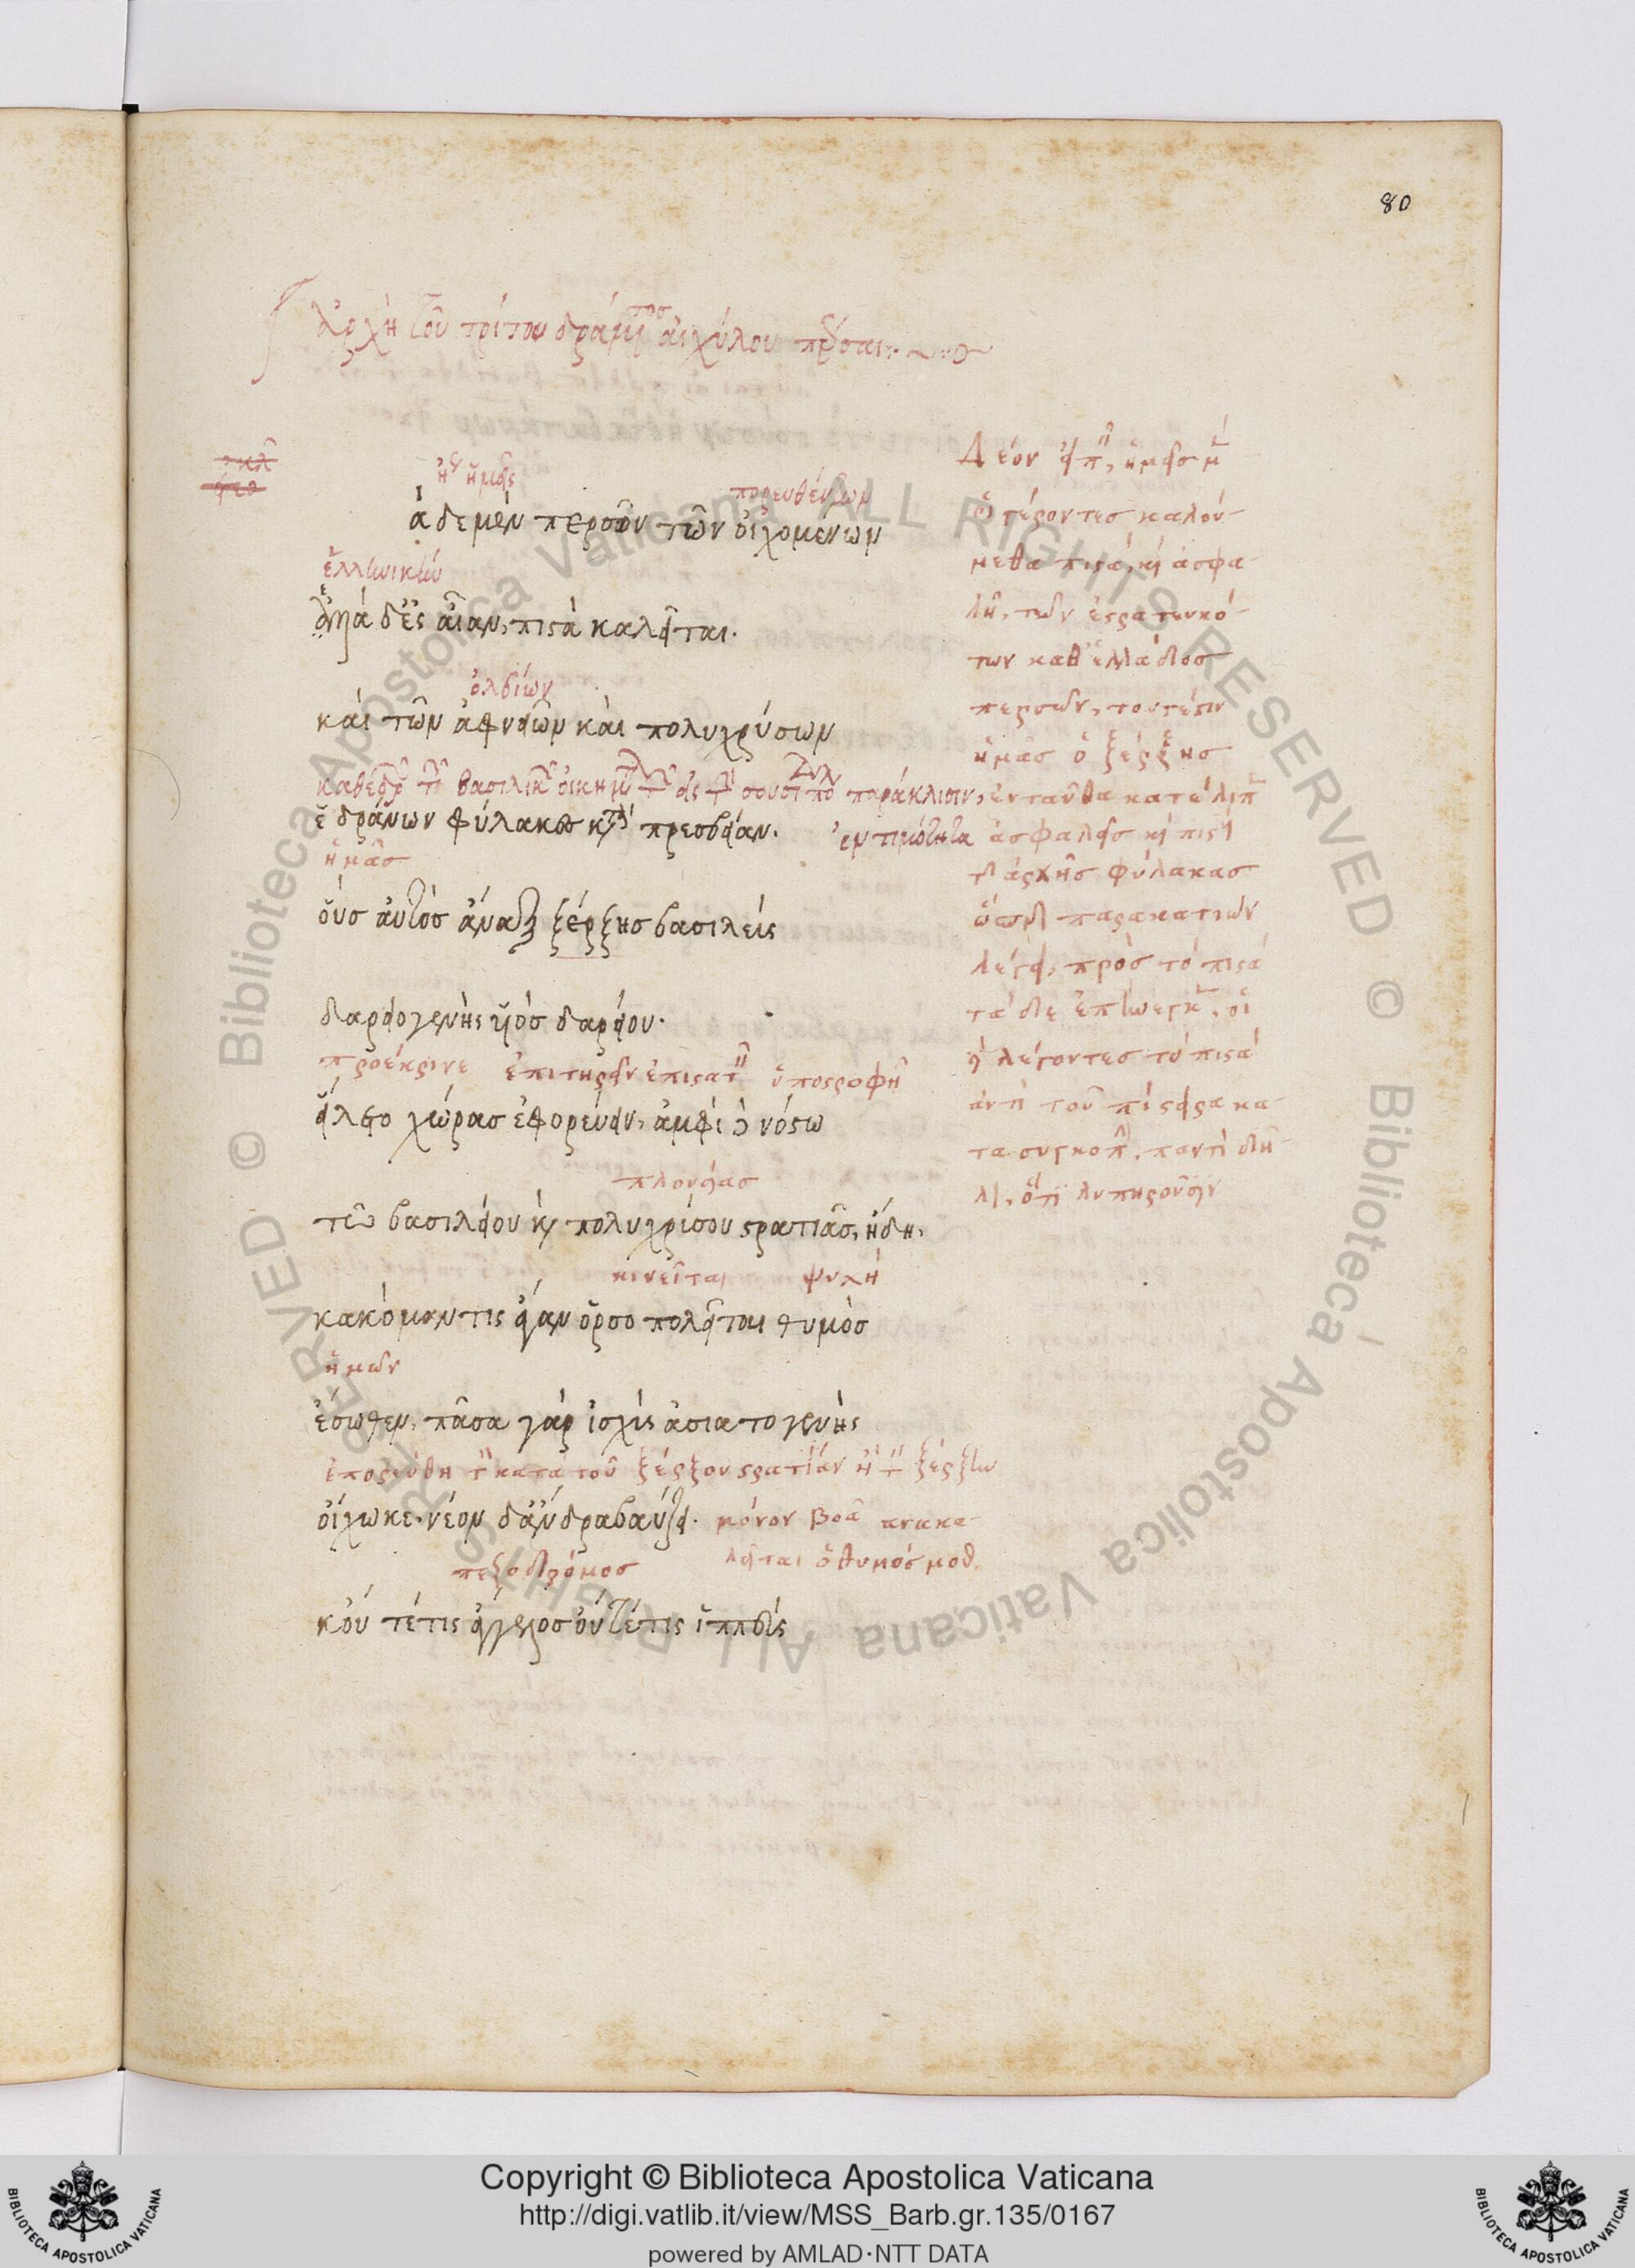 80
ἀρχὴ τοῦ τρίτου δράματος αἰσχύλου πέρσαι
ἡμεῖς
πορευθέντων
άδε μὲν περσῶν τῶν οἰχομένων
ἑλληνικὴν
δ' ἐς αἶαν, πιστὰ καλεῖται.
ὀλβίων
καὶ τῶν ἀφνειῶν καὶ πολυχρύσων
ἑδράνων φύλακες κατὰ πρεσβείαν. ἐντιμότητα
ἡμᾶς
οὓς αὐτὸς ἄναξ ξέρξης βασιλεὺς
δαρειογενὴς υἱὸς δαρείου.
προέκρινε ἐπιτηρεῖν ἐπιστατεῖν ὑποστροφῆ
εἵλετο χώρας ἐφορεύειν, ἀμφὶ δὲ νόστω
πλουσίας
τῶ βασιλείου καὶ πολυχρύσου στρατιᾶς, ἤδη,
κινεῖται ψυχή
κακόμαντις ἄγαν ὀρσοπολεῖται θυμὸς
ἡμῶν
ἔσωθεν, πᾶσα γὰρ ἰσχὺς ἀσιατογενὴς
ἐπορεύθη κατὰ τοῦ ξέρξου στρατιὰν ξέρξην
οἴχωκε. νέον δ' ἄνδρα βαύζει. μόνον βοᾶ ανακα-
πεζοδρόμος λεῖται ὁ θυμός μου
κοὔτέ τις ἄγγελος οὔτέ τις ἱππεὺς
Δέον εἰπεῖν, ἡμεῖς μὲν
οἱ γέροντες καλού-
μεθα πιστὰ, καὶ ἀσφα-
λῆ, τῶν ἐστρατευκό-
των καθ' ἑλλάδος
περσῶν, τουτέστιν
ἡμᾶς ὁ ξέρξης
ἐνταῦθα κατέλιπεν
ἀσφαλεῖς καὶ πιστοὺς
τῆς ἀρχῆς φύλακας
λέγει, πρὸς τὸ πιστὰ
τάδε ἐπήνεγκεν, οἱ
δὲ λέγοντες τὸ πιστὰ
ἀντὶ τοῦ πίστειρα κα-
τὰ συγκοπὴν, παντὶ δῆ-
λοι, ὅτι ληροῦσιν
Copyright © Biblioteca Apostolica Vaticana
http://digi.vatlib.it/view/MSS_Barb.gr.135/0167
powered by AMLAD·NTT DATA
BIBLIOTECA APOSTOLICA VATICANA
BIBLIOTECA APOSTOLICA VATICANA
© Biblioteca Apostolica Vaticana ALL RIGHTS RESERVED © Biblioteca Apostolica Vaticana ALL RIGHTS RESERVED